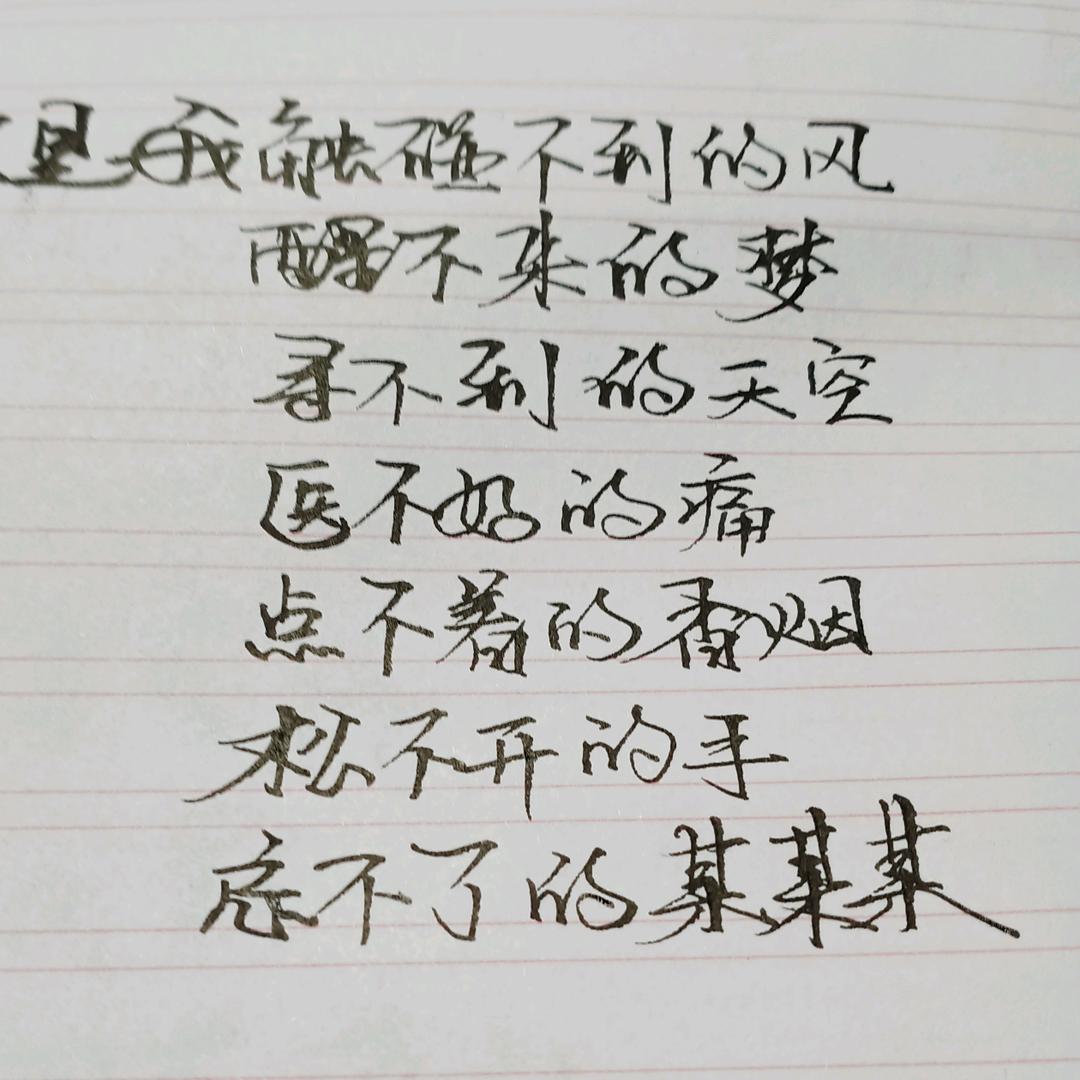 是我触碰不到的风
醒不来的梦
寻不到的天空
医不好的痛
点不着的香烟
松不开的手
忘不了的某某某